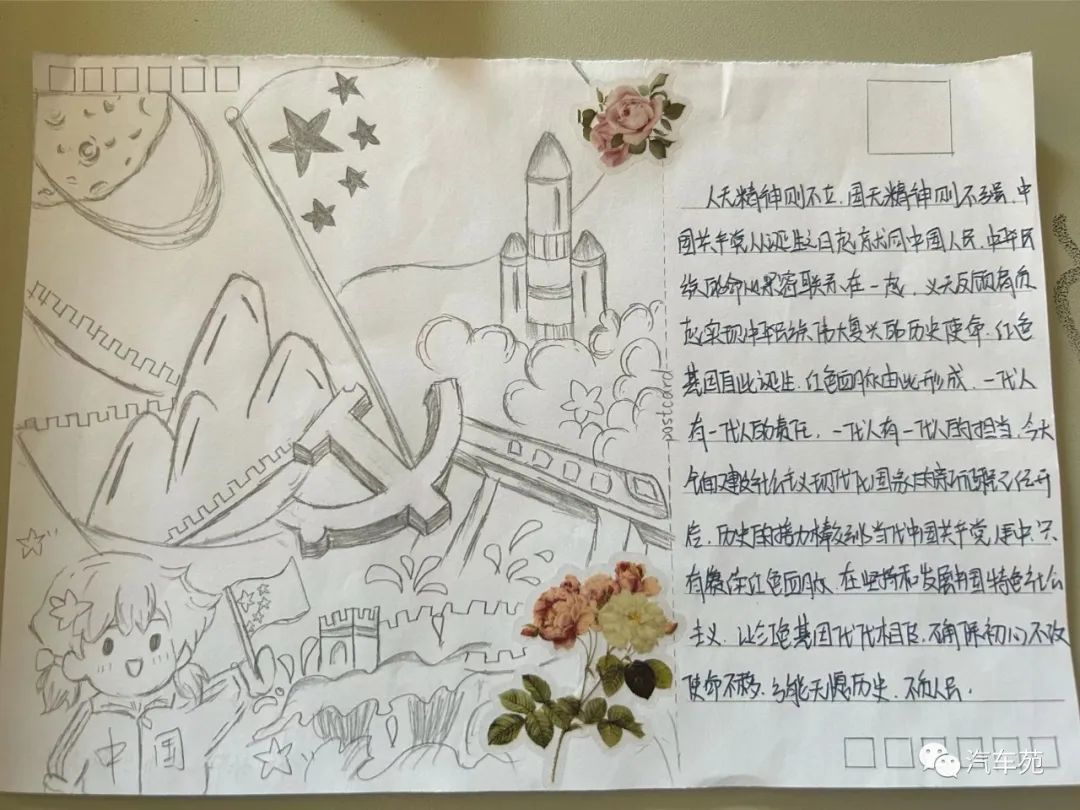 人无精神则不立,国无精神则不强,中
国共产党从诞生之日起就同中国人民,中华民
族的命脉紧密联系在一起,义无反顾肩负
起实现中华民族伟大复兴的历史使命.红色
基因自此诞生.红色血脉由此形成.一代人
有一代人的责任,一代人有一代人的担当,今天
全面建设社会主义现代化国家的新征程已经开
启,历史的接力棒交到当代中国共产党人手中,只
有赓续红色血脉,在坚持和发展中国特色社会
主义,让红色基因代代相传,确保初心不改
使命不移,才能无愧历史,不负人民.
postcard
中国
汽车苑